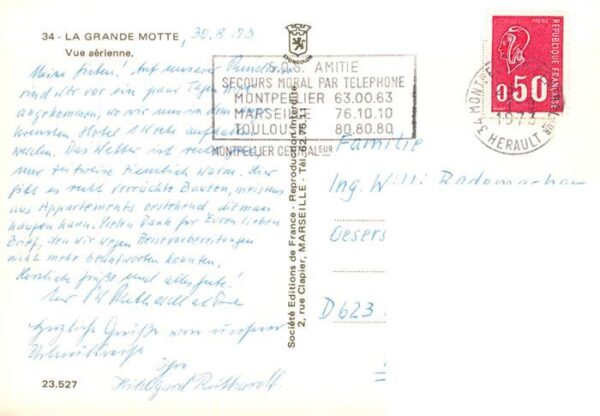 34 - LA GRANDE MOTTE, 30.8.73
Vue aérienne.
Meine Lieben! Auf unserer Rundreise
sind wir vor ein paar Tagen hier
angekommen, wo wir uns in dem
Hotel 1 Woche aufhalten
werden. Das Wetter ist
nur zeitweise ziemlich warm. Hier
gibt es recht verrückte Bauten, meist
aus Appartements bestehend, die man
kaufen kann. Vielen Dank für Euren lieben
Brief, den wir wegen Reisevorbereitungen
nicht mehr beantworten konnten.
Herzliche Grüße und alles Gute!
Euer
Herzliche Grüße von unserer
Urlaubsreise
Ihre
Hildegard
23.527
EDY-COLOR
S.O.S. AMITIE
SECOURS MORAL PAR TELEPHONE
MONTPELLIER 63.00.63
MARSEILLE 76.10.10
TOULOUSE 80.80.80
MONTPELLIER CENTRALISATEUR
Société Editions de France - Reproduction Interdite
2, rue Clapier, MARSEILLE - Tél. 62.75.11
POSTES
REPUBLIQUE FRANÇAISE
0,50
1973
34 MONTPELLIER
HERAULT
Familie
Ing. Willi Rademacher
Oesers
D 623